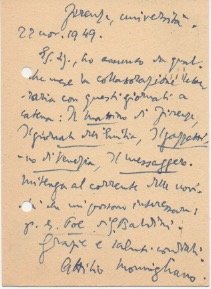 Firenze, università.
22 nov. 1949.
Eg. Sg., ho assunto da qual-
che mese la collaborazione lette-
raria con questi giornali a
catena: Il mattino di Firenze,
Il giornale dell'Emilia, Il gazzetti-
no di Venezia, Il messaggero.
Mi tenga al corrente delle novi-
tà che mi possono interessare:
p. es. Foe di G. Baldini.
Grazie e saluti cordiali
Attilio Momigliano.